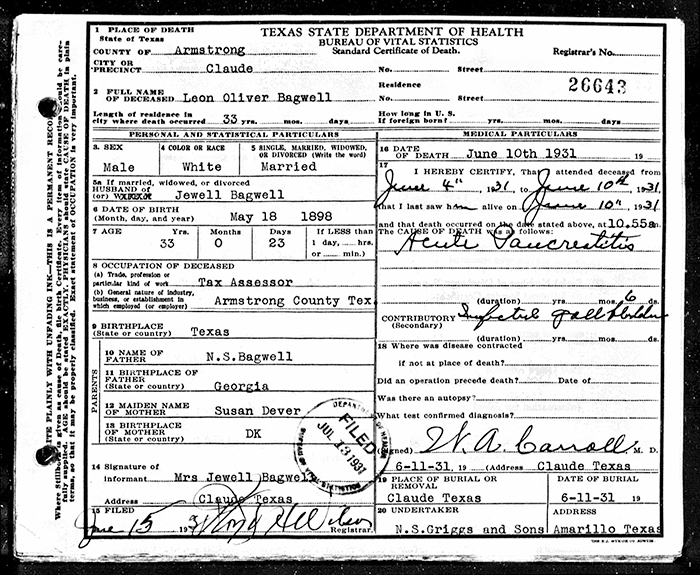 TEXAS STATE DEPARTMENT OF HEALTH
BUREAU OF VITAL STATISTICS
Standard Certificate of Death.
Registrar's No.
1 PLACE OF DEATH
State of Texas
COUNTY OF Armstrong
CITY OR
PRECINCT Claude No. Street
2 FULL NAME
OF DECEASED Leon Oliver Bagwell
Residence
No. Street
26643
Length of residence in
city where death occurred 33 yrs. mos. days
How long in U. S.
If foreign born? yrs. mos. days
PERSONAL AND STATISTICAL PARTICULARS
3. SEX
Male
4 COLOR OR RACE
White
5 SINGLE, MARRIED, WIDOWED,
OR DIVORCED (Write the word)
Married
5a If married, widowed, or divorced
HUSBAND OF
(or) WIFE OF Jewell Bagwell
6 DATE OF BIRTH
(Month, day, and year) May 18 1898
7 AGE Yrs. Months Days If LESS than
33 0 23 1 day, hrs.
or min.
8 OCCUPATION OF DECEASED
(a) Trade, profession or
particular kind of work Tax Assessor
(b) General nature of industry,
business, or establishment in
which employed (or employer) Armstrong County Tex
9 BIRTHPLACE
(State or country) Texas
PARENTS
10 NAME OF
FATHER N.S.Bagwell
11 BIRTHPLACE OF
FATHER
(State or country) Georgia
12 MAIDEN NAME
OF MOTHER Susan Dever
13 BIRTHPLACE
OF MOTHER
(State or country) DK
14 Signature of
informant Mrs Jewell Bagwell
Address Claude Texas
15 FILED
June 15 193 Floyd Wilson
Registrar.
MEDICAL PARTICULARS
16 DATE
OF DEATH June 10th 1931 19
17
I HEREBY CERTIFY, That I attended deceased from
June 4th, 1931, to June 10th, 1931
that I last saw him alive on June 10th, 1931
and that death occurred on the date stated above, at 10.55a m.
The CAUSE OF DEATH was as follows:
Acute Pancreatitis
(duration) yrs. mos. 6 ds.
CONTRIBUTORY Infected Gall Bladder
(Secondary)
(duration) yrs. mos. ds.
18 Where was disease contracted
if not at place of death?
Did an operation precede death? Date of
Was there an autopsy?
What test confirmed diagnosis?
(Signed) W. A. Carroll M. D.
6-11-31, 19 (Address) Claude Texas
19 PLACE OF BURIAL OR
REMOVAL
Claude Texas
DATE OF BURIAL
6-11-31 19
20 UNDERTAKER
N.S.Griggs and Sons
ADDRESS
Amarillo Texas
DEPARTMENT OF HEALTH
FILED
JUL 13 1931
DIVISION OF VITAL STATISTICS